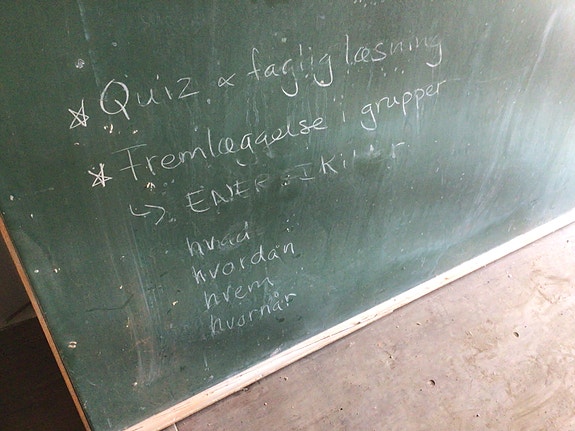 ☆ Quiz & faglig læsning
☆ Fremlæggelse i grupper
↳ ENERGIKILDER
hvad
hvordan
hvem
hvornår